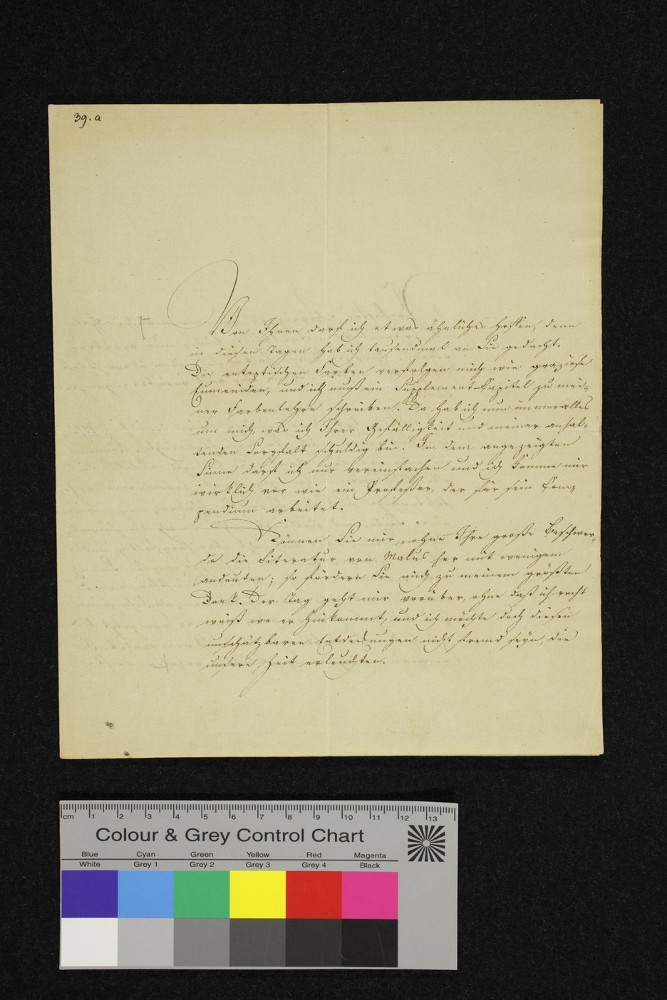 39.a
Von Ihnen darf ich etwas ähnliches hoffen, denn
in diesen Tagen hab ich tausendmal an Sie gedacht.
Die entoptischen Farben verfolgen mich wie graziose
Eumeniden, und ich muß ein Supplement-Capitel zu mei-
ner Farbenlehre schreiben. Da hab ich nun
um mich, was ich Ihrer Gefälligkeit und meiner anhal-
tenden Sorgfalt schuldig bin. In dem angezeigten
Sinne darf ich nur vereinfachen und ich komme mir
wirklich vor wie ein Professor, der für sein Com-
pendium arbeitet.
Können Sie mir, ohne Ihre große Beschwer-
de die Literatur von Malus her mit wenigem
andeuten; so fördern Sie mich zu meinem größten
Dank. Der Tag geht mir vorüber, ohne daß ich recht
weiß wo er hinkommt, und ich möchte doch diesen
unschätzbaren Entdeckungen nicht fremd seyn, die
unsere Zeit erleuchten.
cm 1 2 3 4 5 6 7 8 9 10 11 12 13
Colour & Grey Control Chart
Blue Cyan Green Yellow Red Magenta
White Grey 1 Grey 2 Grey 3 Grey 4 Black